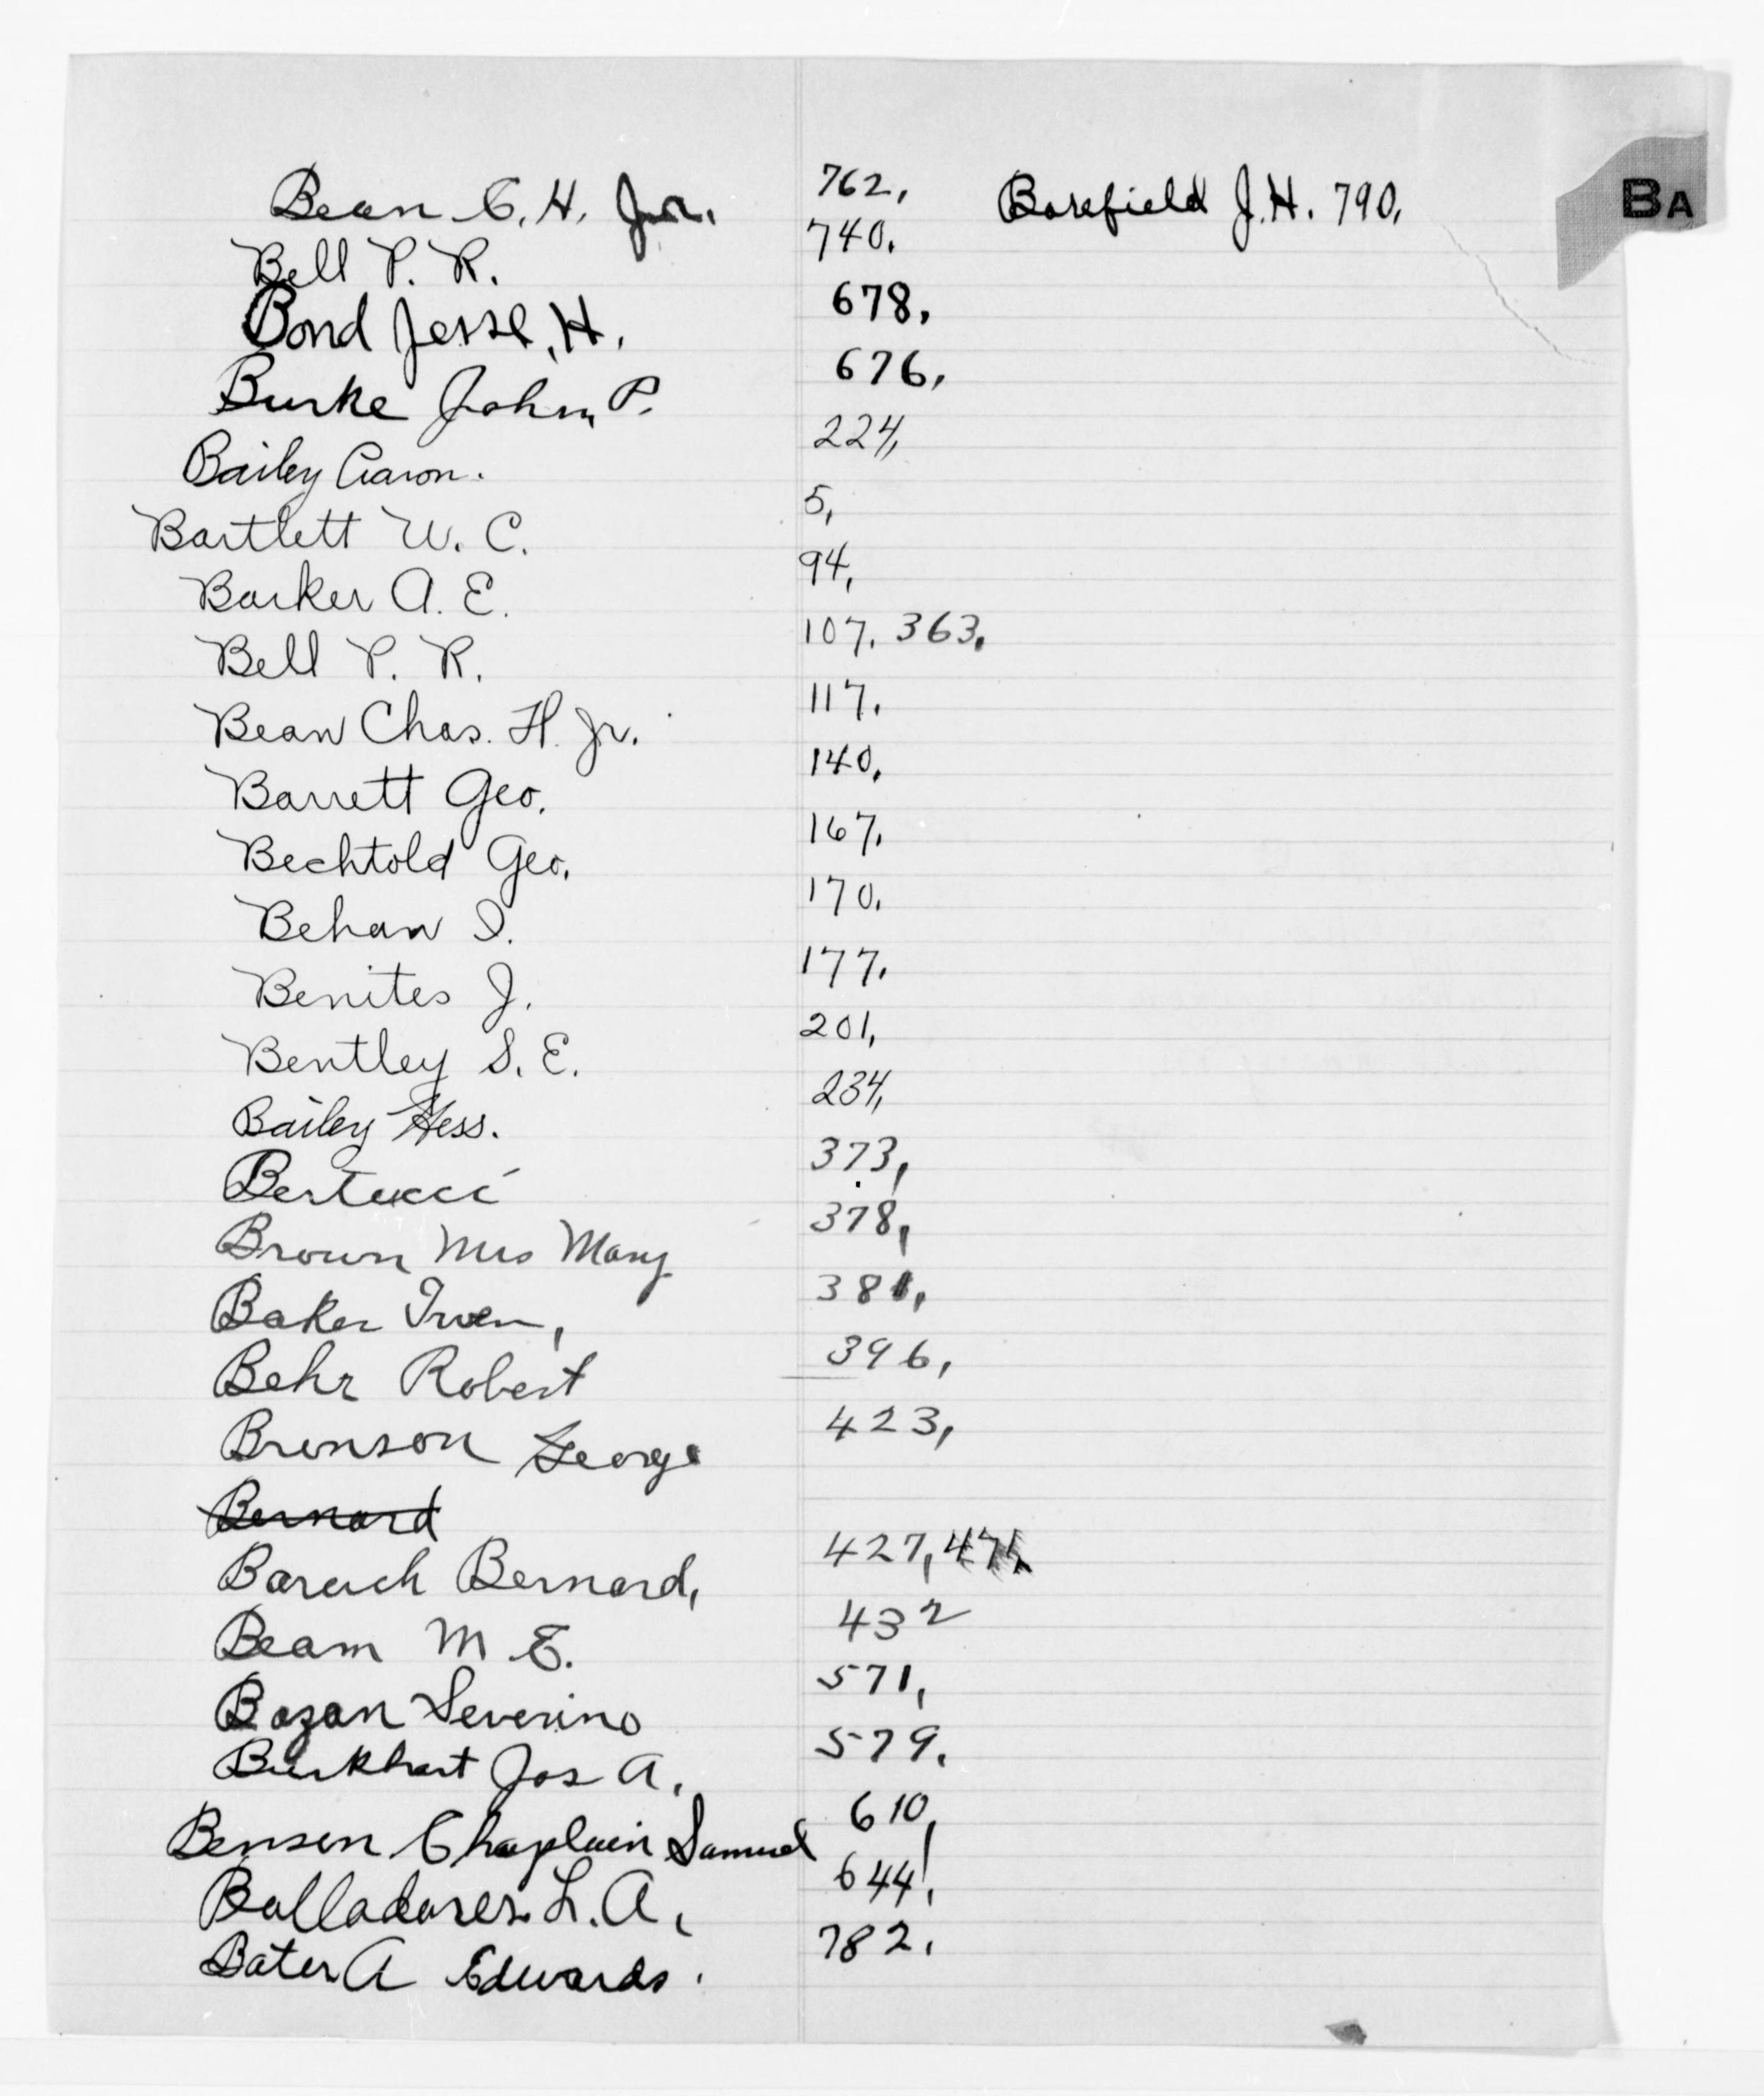 BA
Bean C. H. Jr. 762, Barefield J. H. 790.
Bell P. R. 740.
Bond Jesse, H. 678,
Burke John, P. 676,
Bailey Aaron. 224,
Bartlett W. C. 5,
Barker A. E. 94,
Bell P. R. 107. 363.
Bean Chas. H. Jr. 117.
Barrett Geo. 140.
Bechtold Geo. 167.
Behan I. 170.
Benites J. 177.
Bentley S. E. 201,
Bailey Hess. 234,
Bertucci 373,
Brown Mrs Mary 378,
Baker 381,
Behr Robert 396,
Brenson George 423,
Bernard
Baruch Bernard, 427,
Beam M E. 432
Bazan Severino 571,
Burkhart Jos A. 579.
Benson Chaplain Samuel 610,
Balladares L. A, 644,
Bater A Edwards. 782.